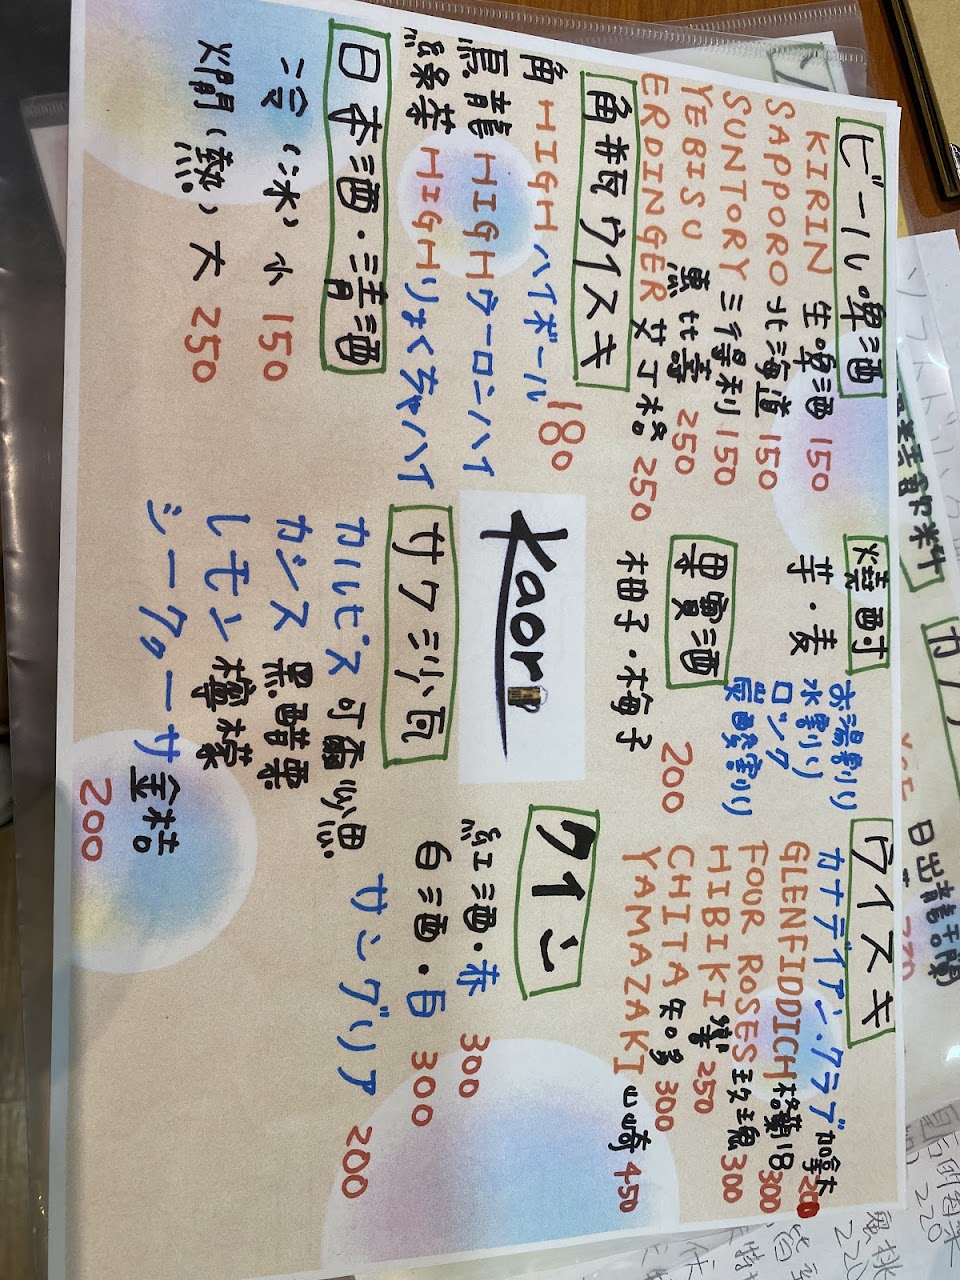 ビール啤酒
KIRIN 生啤酒 150
SAPPORO 北海道 150
SUNTORY 三得利 150
YEBISU 惠比壽 250
ERDINGER 艾丁格 250
角瓶ウイスキ
角 HIGH ハイボール 180
烏龍 HIGH ウーロンハイ
綠茶 HIGH りょくちゃハイ
日本酒・清酒
冷(冰) 小 150
燗(熱) 大 250
燒酎
芋・麦
お湯割り
水割り
ロック
尿酸割り
果實酒
柚子・梅子
200
Kaori
サワ沙瓦
カルピス 可爾必思
カシス 黑醋栗
レモン 檸檬
シークヮーサ 金桔
200
ウイスキ
カナディアン.クラブ 加拿大 200
GLENFIDDICH 格蘭18 300
FOUR ROSES 玫瑰 300
HIBIKI 響 250
CHITA 知多 300
YAMAZAKI 山崎 450
ワイン
紅酒・赤 300
白酒・白 300
サングリア 200
日出龍舌蘭
220
220